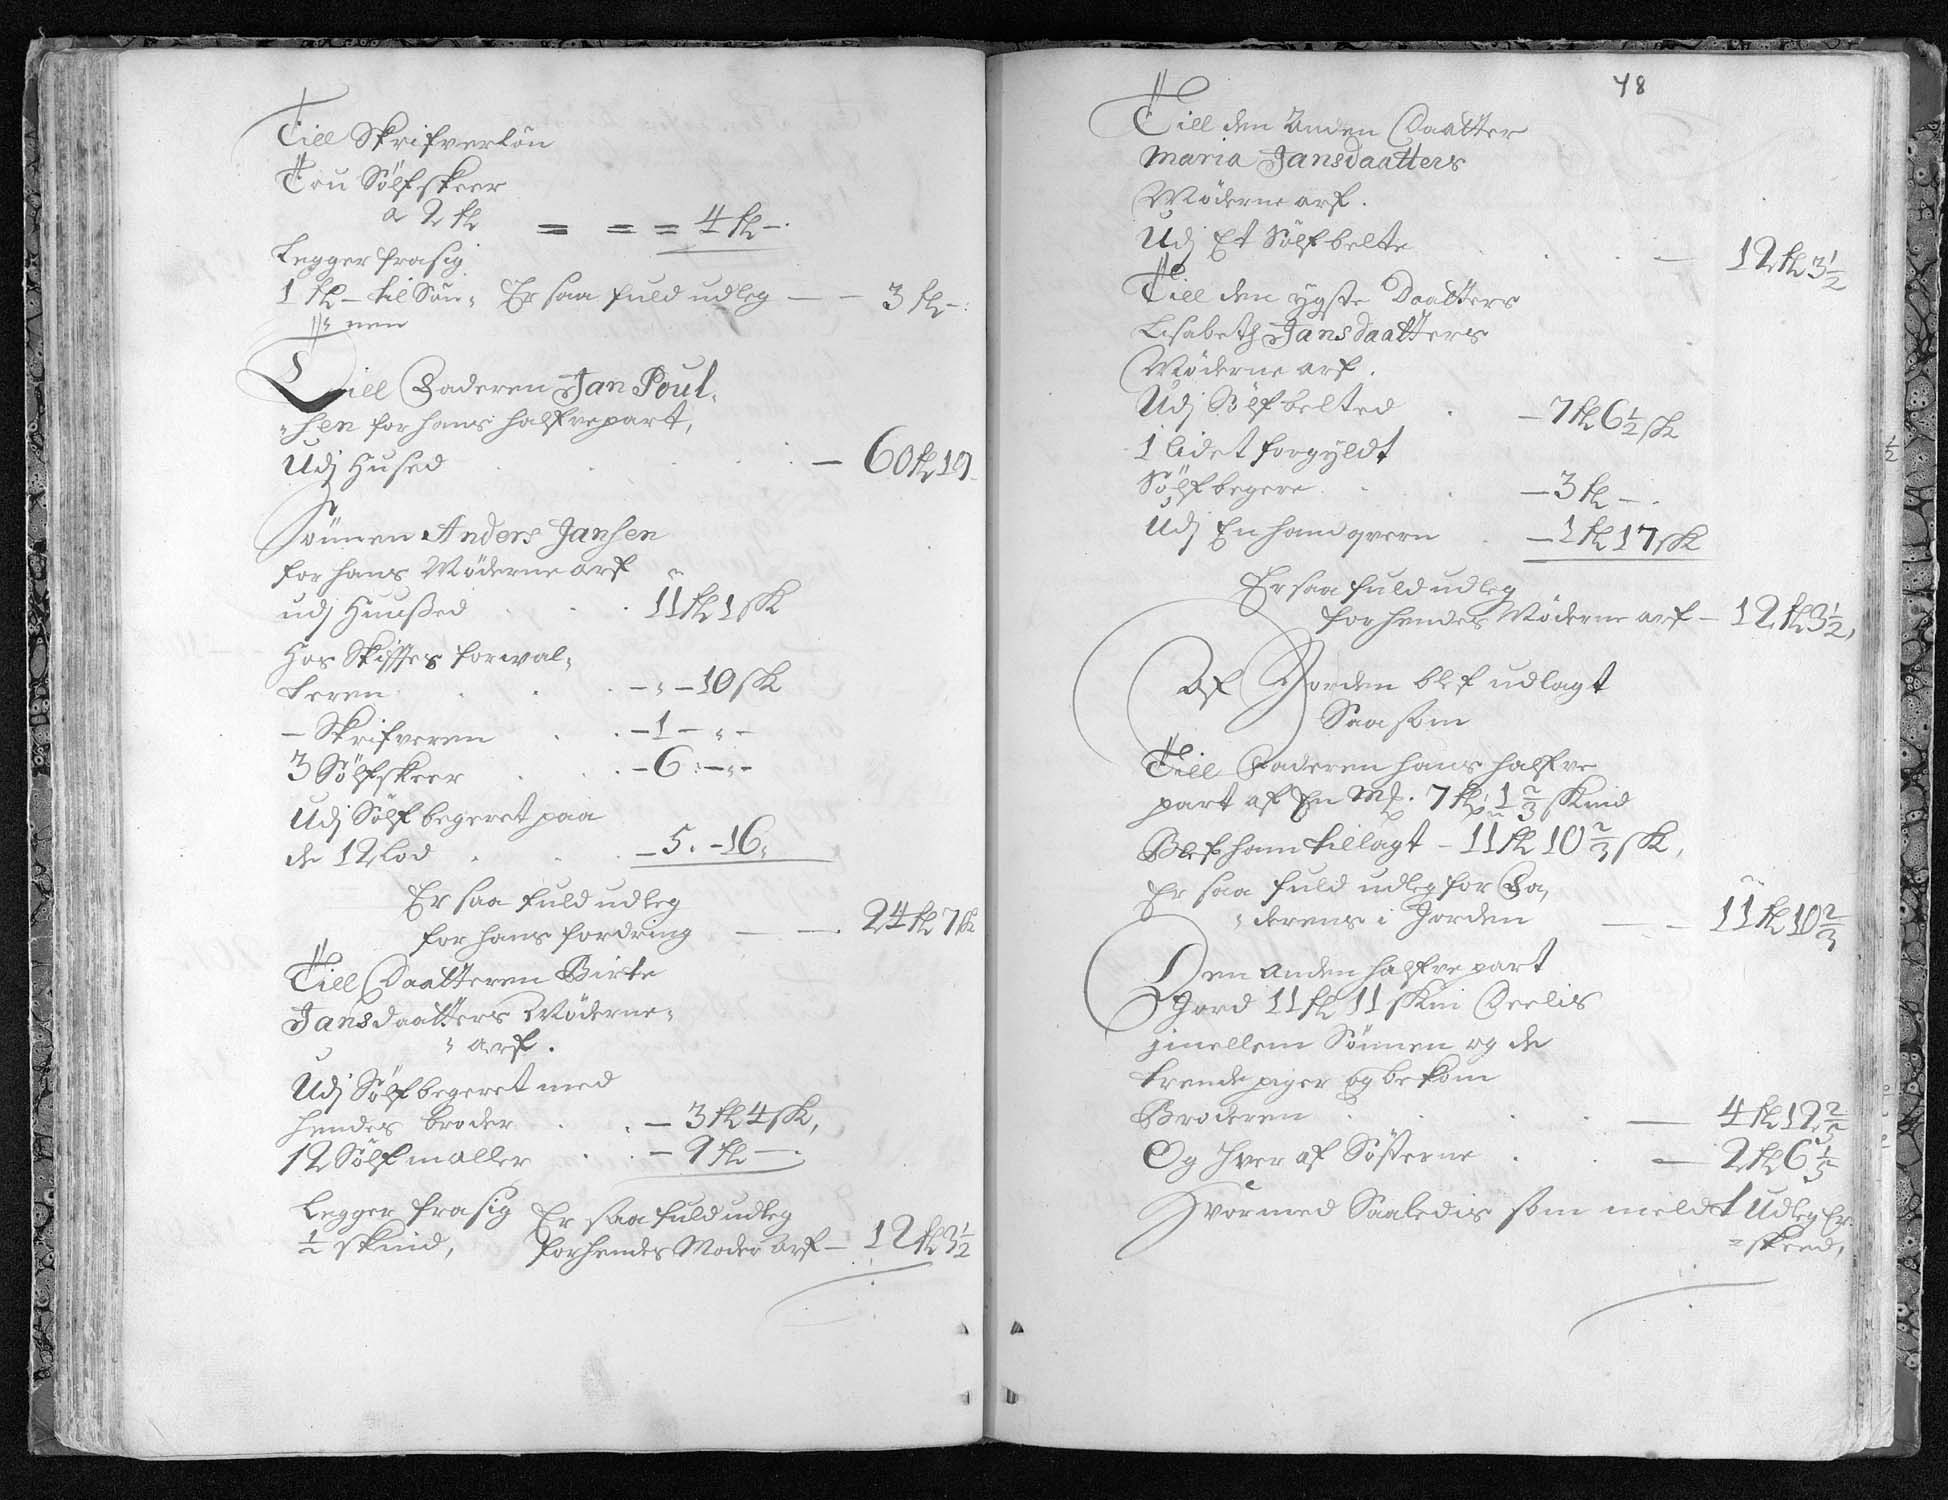 Till Skrifverlön
Tou Sölfskeer
a 2 fl = = = 4 fl -.
Legger fra sig
1 fl - til Søn- Er saa fuld udleg - - 3 fl -:
nen
Till Faderen Jan Poul-
-sen for hans halfvepart,
Udj Hused . . . . - 60 fl 19
Sönnen Anders Jansen
for hans Möderne arf
udj Huused . . . 11 fl 1 sk
Hos Skifftes forwal-
teren . . . -,-10 sk
- Skrifveren . . -1-,-
3 Sölfskeer . . -6:-,-
Udj Sölfbegeret paa
de 12 Lod . . . -5.-16,
Er saa fuld udleg
for hans fordring - -. 24 fl 7 sk
Till Daatteren Birte
Jansdaatters Möderne-
- arf.
Udj Sölfbegeret med
hendes broder . . - 3 fl 4 sk,
12 Sölfmaller . . - 9 fl -.
Legger fra sig Er saa fuld udleg
½ skind, for hendes Moder arf - 12 fl 3½
48
Till den Anden Daatter
Maria Jansdaatters
Möderne arf.
Udj Et Sölfbelte . . . - 12 fl 3½
Till den ygste Daatters
Lisabeth Jansdaatters
Möderne arf.
Udj Sölfbelted . - 7 fl 6½ sk
1 lidet forgyldt
Sölfbegere . . - 3 fl -.
Udj En handqvern . - 1 fl 17 sk
Er saa fuld udleg
for hendes Möderne arf - 12 fl 3½,
Af Jorden blef udlagt
Saasom
Till Faderen hans halfve
part af En Mk. 7 fl: 1⅔ skind
Blef ham tillagt - 11 fl 10⅔ sk,
Er saa fuld udleg for Fa,
- derens i Jorden - - 11 fl 10⅔
Den anden halfve part
Jord 11 fl 11 skin Deelis
jmellem Sönnen og de
trende piger og bekom
Broderen . . . - 4 fl 12⅖
Og hver af Sösterne . . - 2 fl 6⅕
Hvormed Saaledis som meldt Udleg Er
= skeed,